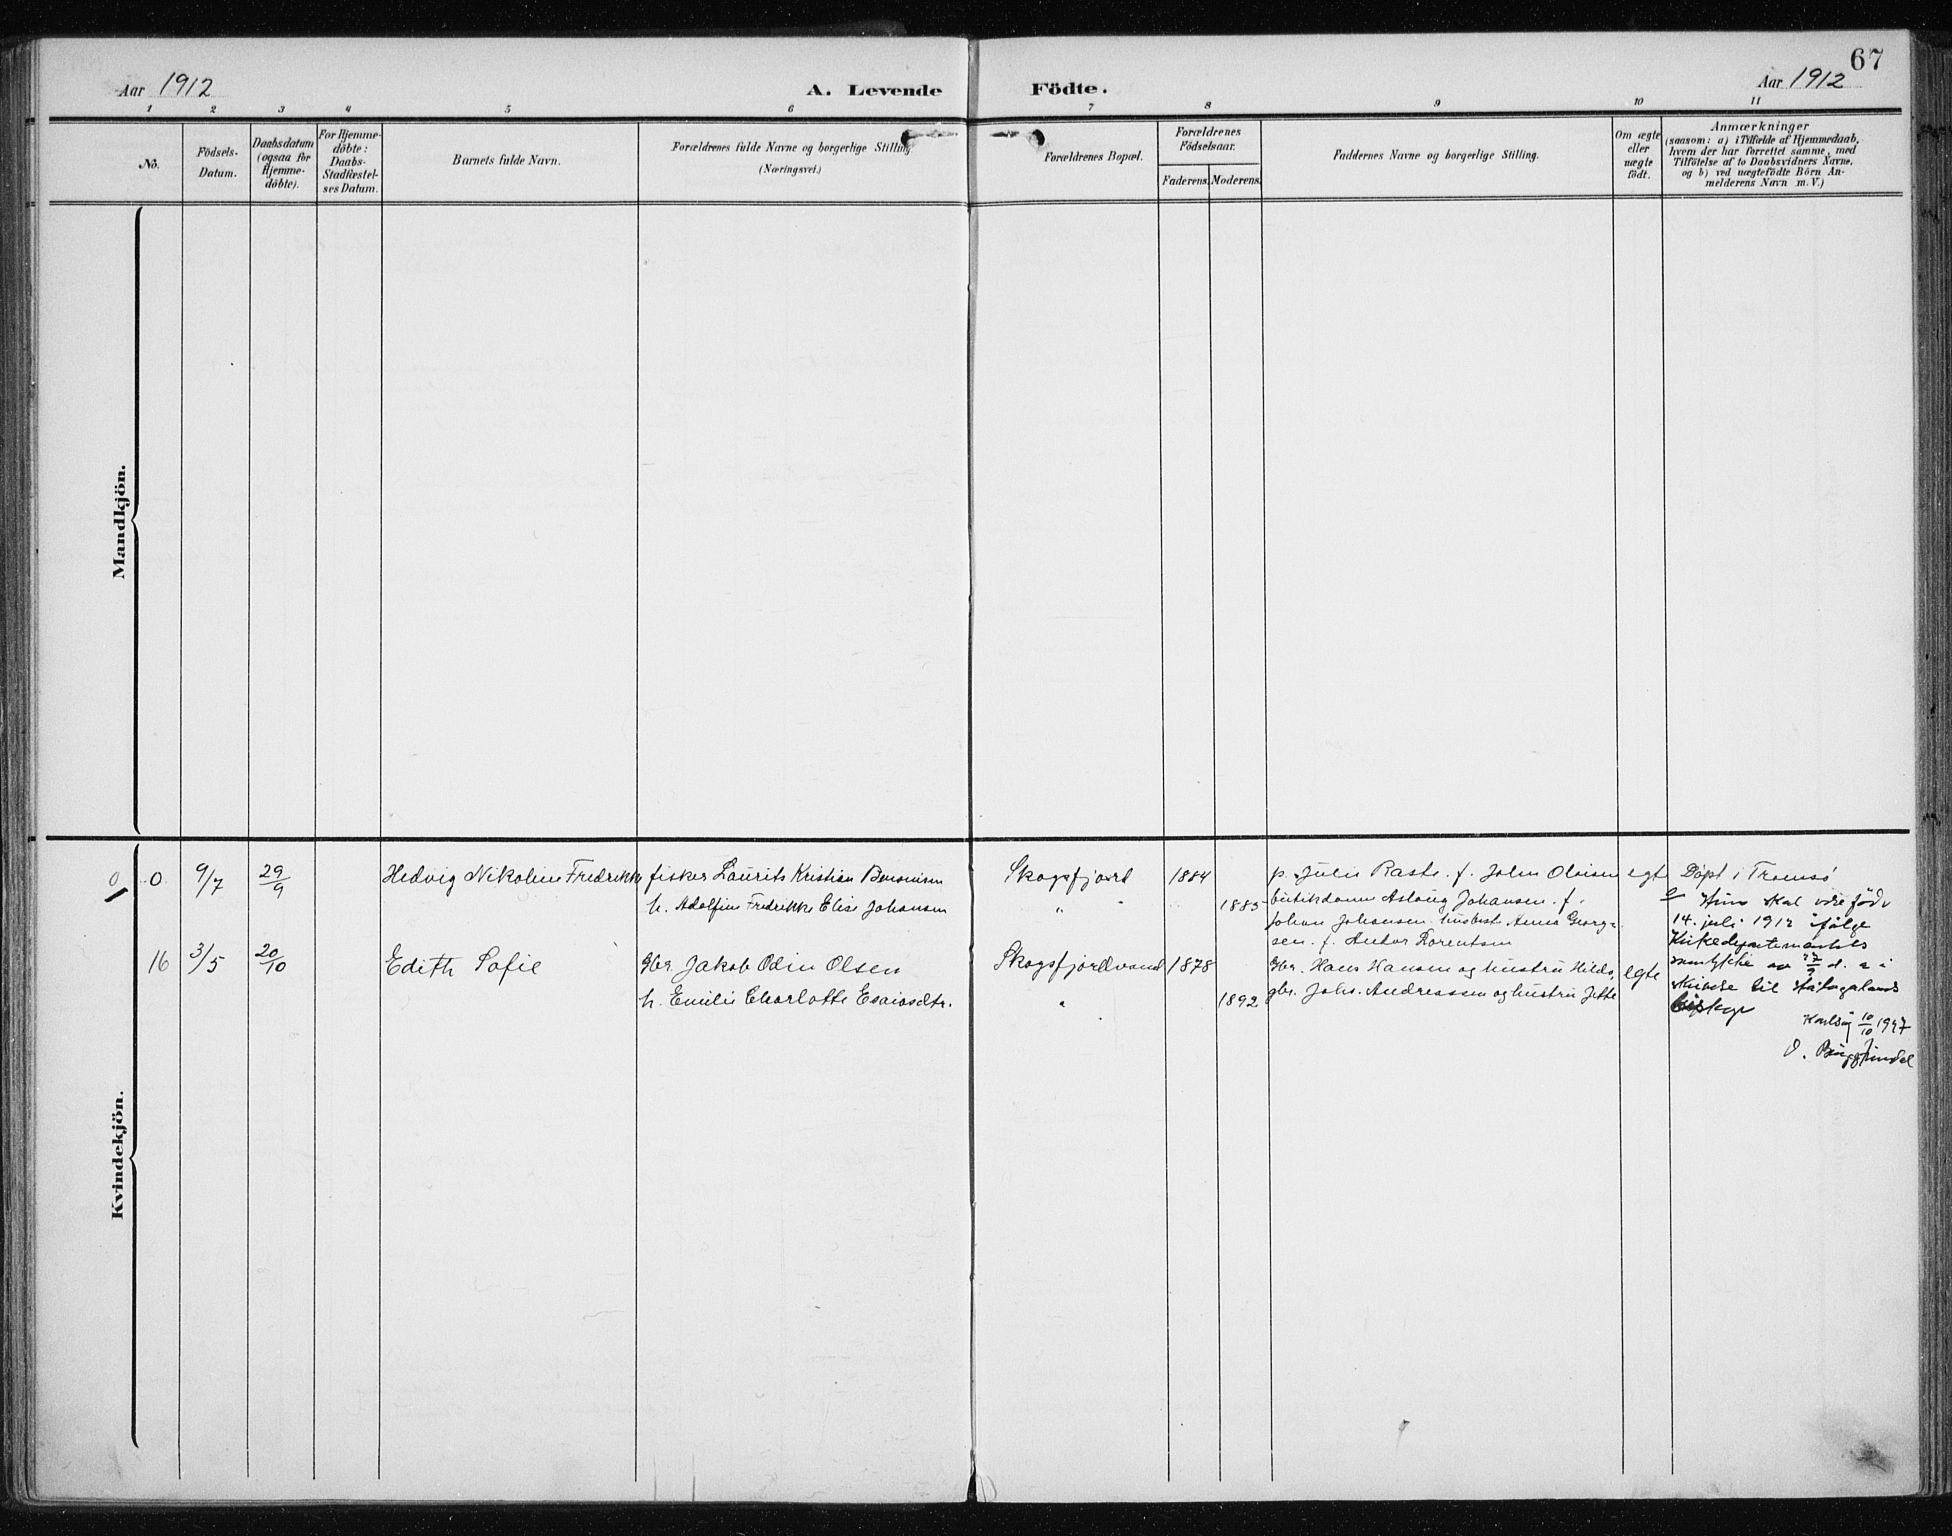 67
Aar 1912
A. Levende Födte.
Aar 1912
1 2 3 4 5 6 7 8 9 10 11
No.
Födsels-
Datum.
Daabsdatum
(ogsaa for
Hjemme-
döbte).
For Hjemme-
döbte:
Daabs-
Stadfæstel-
ses Datum.
Barnets fulde Navn.
Forældrenes fulde Navne og borgerlige Stilling.
(Næringsvei.)
Forældrenes Bopæl.
Forældrenes
Födselsaar.
Faderens. Moderens.
Faddernes Navne og borgerlige Stilling.
Om ægte
eller
uægte
födt.
Anmærkninger
(saasom: a) i Tilfælde af Hjemmedaab,
hvem der har forrettet samme, med
Tilföielse af to Daabsvidners Navne,
og b) ved uægtefödte Börn An-
melderens Navn m. V.)
Mandkjön.
Kvindekjön.
0 0 9/7 29/9 Hedvig Nikoline Fredrikke fisker Laurits Kristian
h. Adolfine Fredrikke Elise Johansen
Skogsfjord 1884
" " 1885
p. Julie Raste. f. John Oloisen
butikdame Aslaug Johansen. f.
Johan Johansen. husbest. Anna Georg-
sen. f. Anton Lorentsen
egt
Döpt i Tromsö
Hun skal være föd
14. juli 1912 ifölge
Kirkedepartementets
samtykke av 27/9 d. a. i
skrivelse til Hålogalands
biskop
Karlsöy 10/10 1947
O.
16 3/5 20/10 Edith Sofie gbr. Jakob Odin Olsen
h. Emilie Charlotte Esaiasdtr.
Skogsfjordvand 1878
" 1892
gbr. Hans Hansen og hustru Hilda,
gbr. Johs. Andreassen og hustru Jette
egte